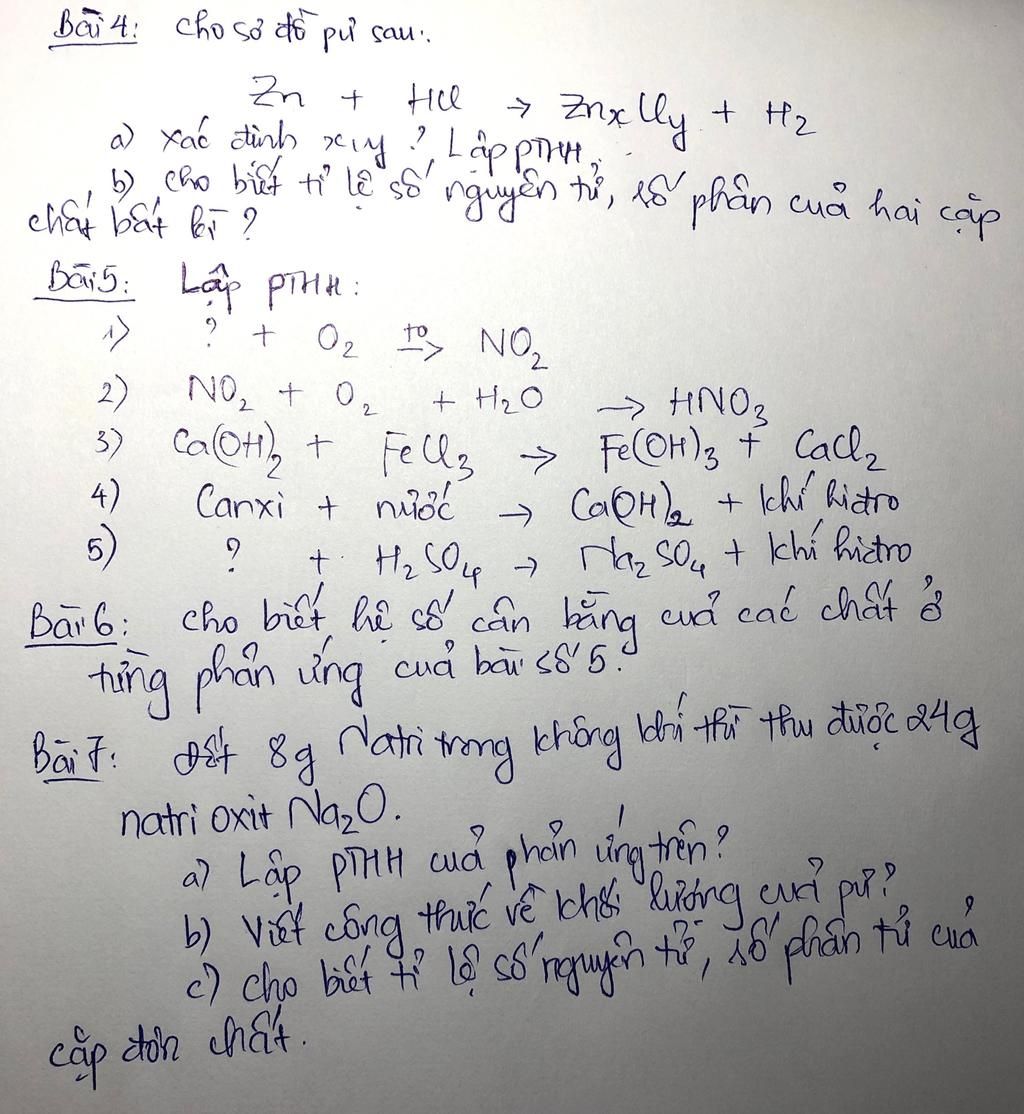 Bài 4: cho sơ đồ pư sau:
Zn + HCl → ZnxCly + H2
a) xác định x, y? Lập PTHH.
b) cho biết tỉ lệ số nguyên tử, số phân của hai cặp
chất bất kì?
Bài 5: Lập PTHH:
1) ? + O2 →(to) NO2
2) NO2 + O2 + H2O → HNO3
3) Ca(OH)2 + FeCl3 → Fe(OH)3 + CaCl2
4) Canxi + nước → Ca(OH)2 + khí hiđro
5) ? + H2SO4 → Na2SO4 + khí hiđro
Bài 6: cho biết hệ số cân bằng của các chất ở
từng phản ứng của bài số 5.
Bài 7: đốt 8g Natri trong không khí thì thu được 24g
natri oxit Na2O.
a) Lập PTHH của phản ứng trên?
b) Viết công thức về khối lượng của pư?
c) cho biết tỉ lệ số nguyên tử, số phân tử của
cặp đơn chất.